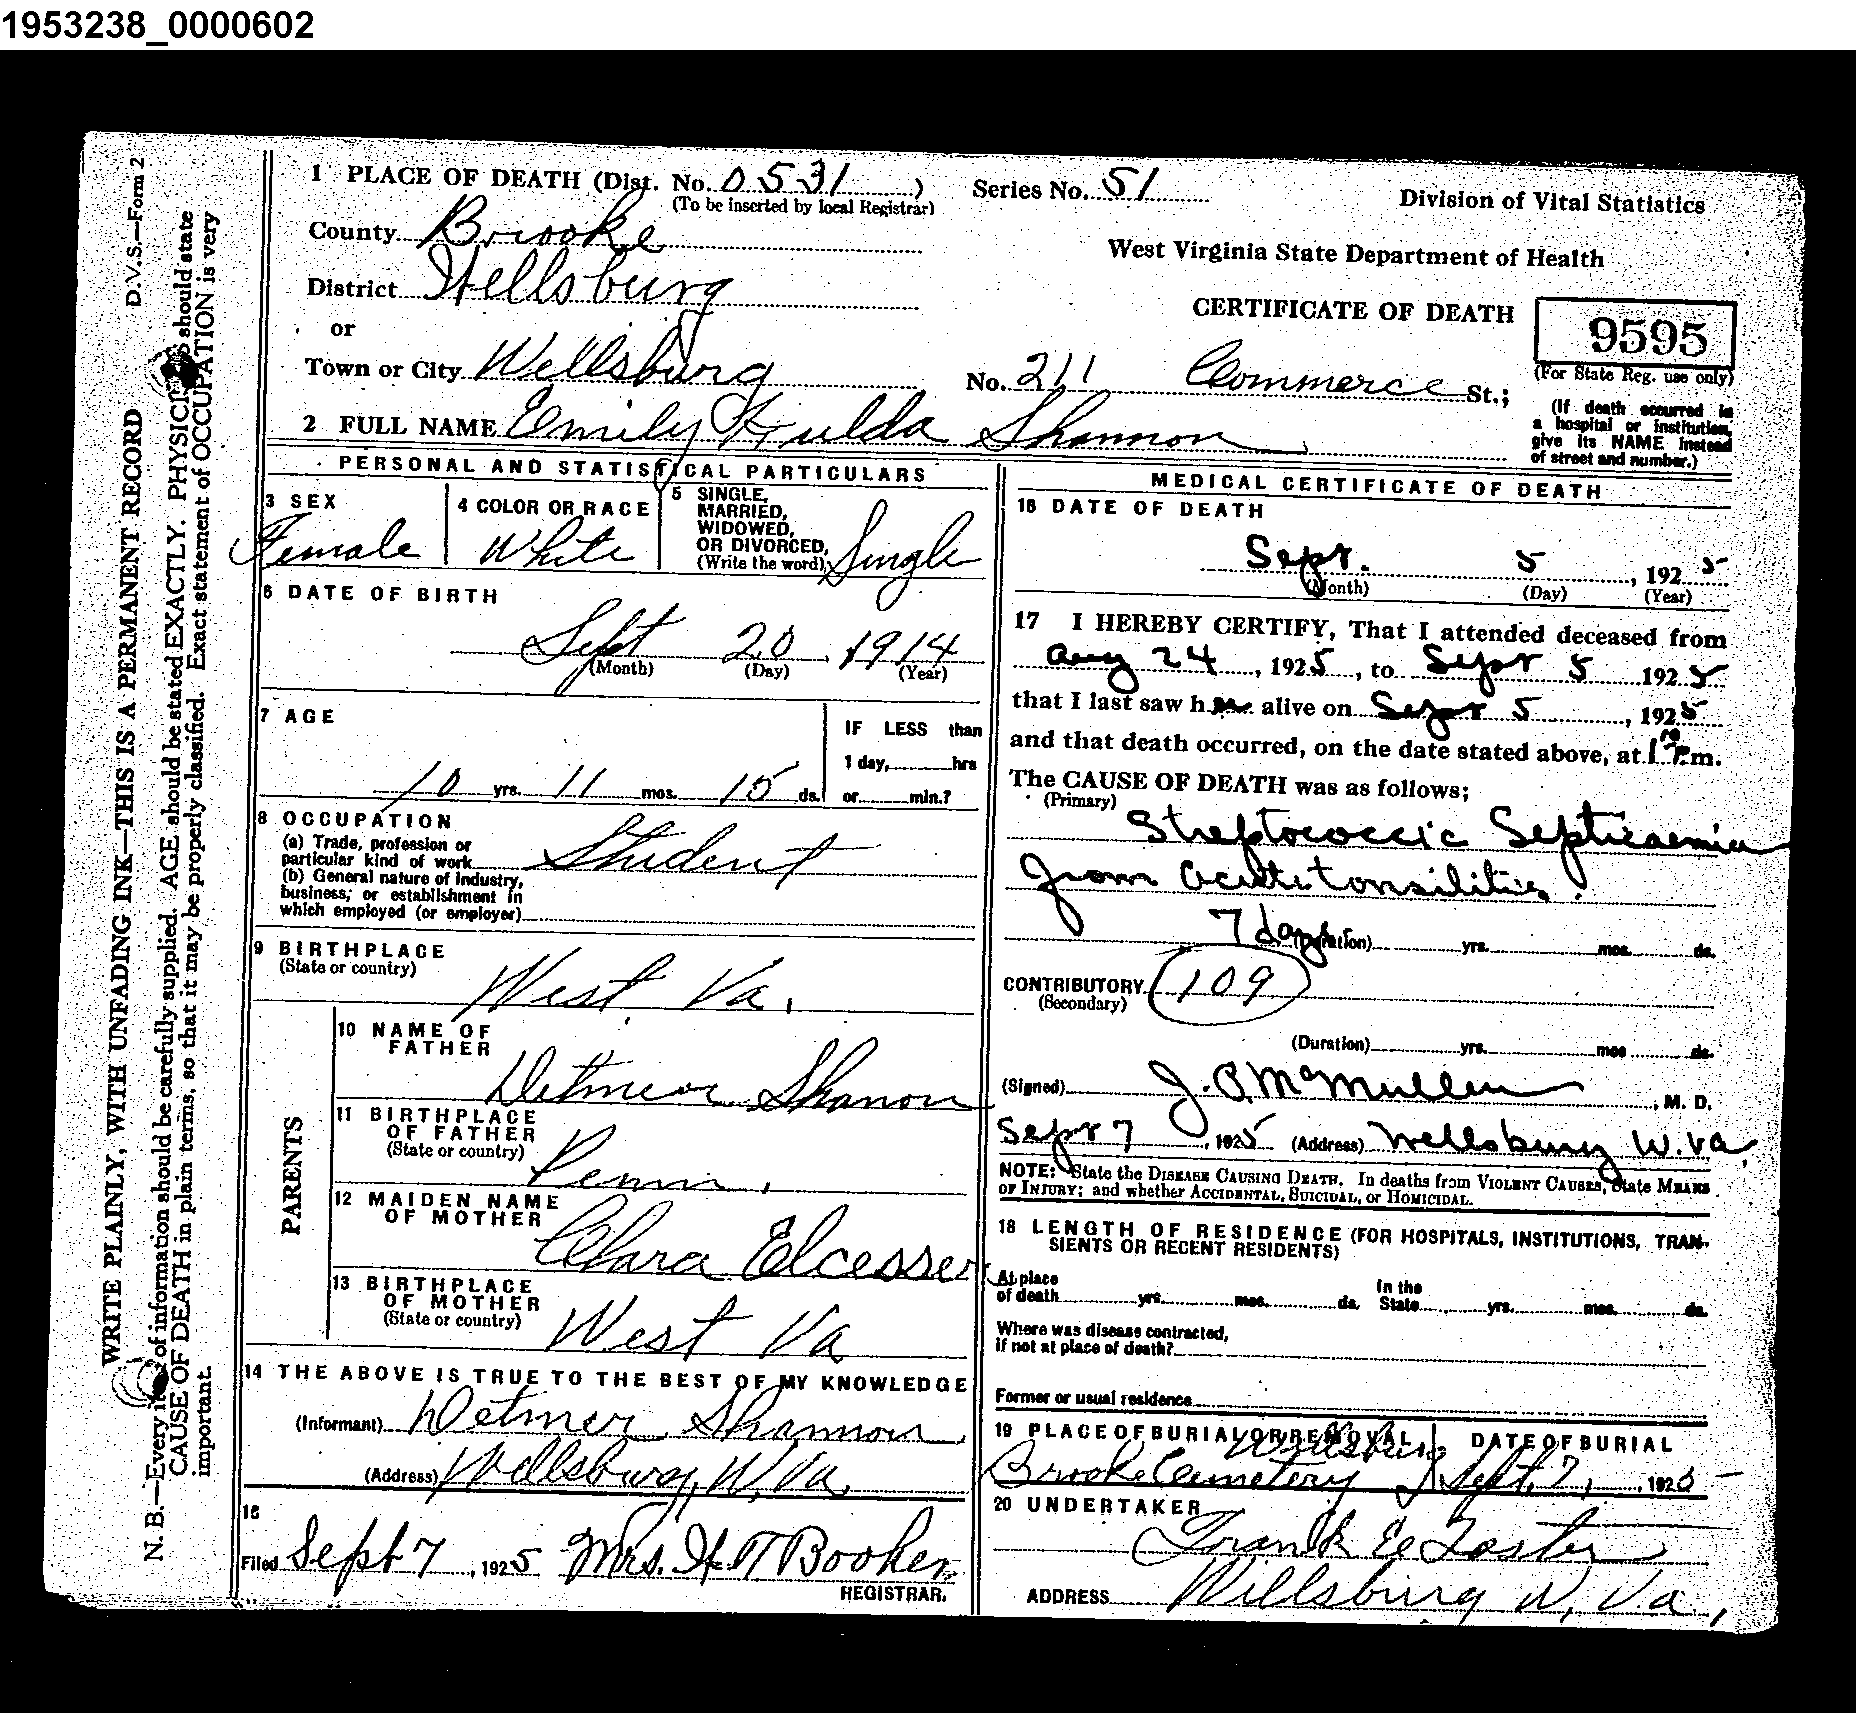 1953238_0000602
D.V.S.—Form 2
WRITE PLAINLY, WITH UNFADING INK—THIS IS A PERMANENT RECORD
N. B.—Every item of information should be carefully supplied. AGE should be stated EXACTLY. PHYSICIANS should state
CAUSE OF DEATH in plain terms, so that it may be properly classified. Exact statement of OCCUPATION is very
important.
1 PLACE OF DEATH (Dist. No. 0531)
(To be inserted by local Registrar)
Series No. 51
Division of Vital Statistics
County Brooke
West Virginia State Department of Health
District Wellsburg
CERTIFICATE OF DEATH
9595
(For State Reg. use only)
or
Town or City Wellsburg
No. 211 Commerce St.;
(If death occurred in
a hospital or institution,
give its NAME instead
of street and number.)
2 FULL NAME Emily Hulda Shannon
PERSONAL AND STATISTICAL PARTICULARS
3 SEX
Female
4 COLOR OR RACE
White
5 SINGLE,
MARRIED,
WIDOWED,
OR DIVORCED,
(Write the word) Single
6 DATE OF BIRTH
Sept 20, 1914
(Month) (Day) (Year)
7 AGE
10 yrs. 11 mos. 15 ds.
IF LESS than
1 day, hrs
or min.?
8 OCCUPATION
(a) Trade, profession or
particular kind of work Student
(b) General nature of industry,
business, or establishment in
which employed (or employer)
9 BIRTHPLACE
(State or country)
West Va.
PARENTS
10 NAME OF
FATHER
Detmear Shanon
11 BIRTHPLACE
OF FATHER
(State or country)
Penn.
12 MAIDEN NAME
OF MOTHER
Clara Elcesser
13 BIRTHPLACE
OF MOTHER
(State or country)
West Va
14 THE ABOVE IS TRUE TO THE BEST OF MY KNOWLEDGE
(Informant) Detmer Shannon
(Address) Wellsburg, W. Va.
15
Filed Sept 7, 1925 Mrs. H T Booher
REGISTRAR.
MEDICAL CERTIFICATE OF DEATH
16 DATE OF DEATH
Sept. 5, 1925
(Month) (Day) (Year)
17 I HEREBY CERTIFY, That I attended deceased from
Aug 24, 1925, to Sept 5 1925
that I last saw her alive on Sept 5, 1925
and that death occurred, on the date stated above, at 1 P.m.
The CAUSE OF DEATH was as follows;
(Primary)
Streptococcic Septicaemia
from acute tonsilitis.
7 days (Duration) yrs. mos. ds.
CONTRIBUTORY 109
(Secondary)
(Duration) yrs. mos ds.
(Signed) J. P. McMullen, M. D.
Sept 7, 1925 (Address) Wellsburg W. Va.
NOTE: State the DISEASE CAUSING DEATH. In deaths from VIOLENT CAUSES, State MEANS
OF INJURY; and whether ACCIDENTAL, SUICIDAL, or HOMICIDAL.
18 LENGTH OF RESIDENCE (FOR HOSPITALS, INSTITUTIONS, TRAN-
SIENTS OR RECENT RESIDENTS)
At place
of death yrs. mos. ds.
In the
State yrs. mos. ds.
Where was disease contracted,
if not at place of death?
Former or usual residence
19 PLACE OF BURIAL OR REMOVAL
Wellsburg
Brooke Cemetery
DATE OF BURIAL
Sept. 7, 1925
20 UNDERTAKER
Frank E Foster
ADDRESS Wellsburg W. Va.